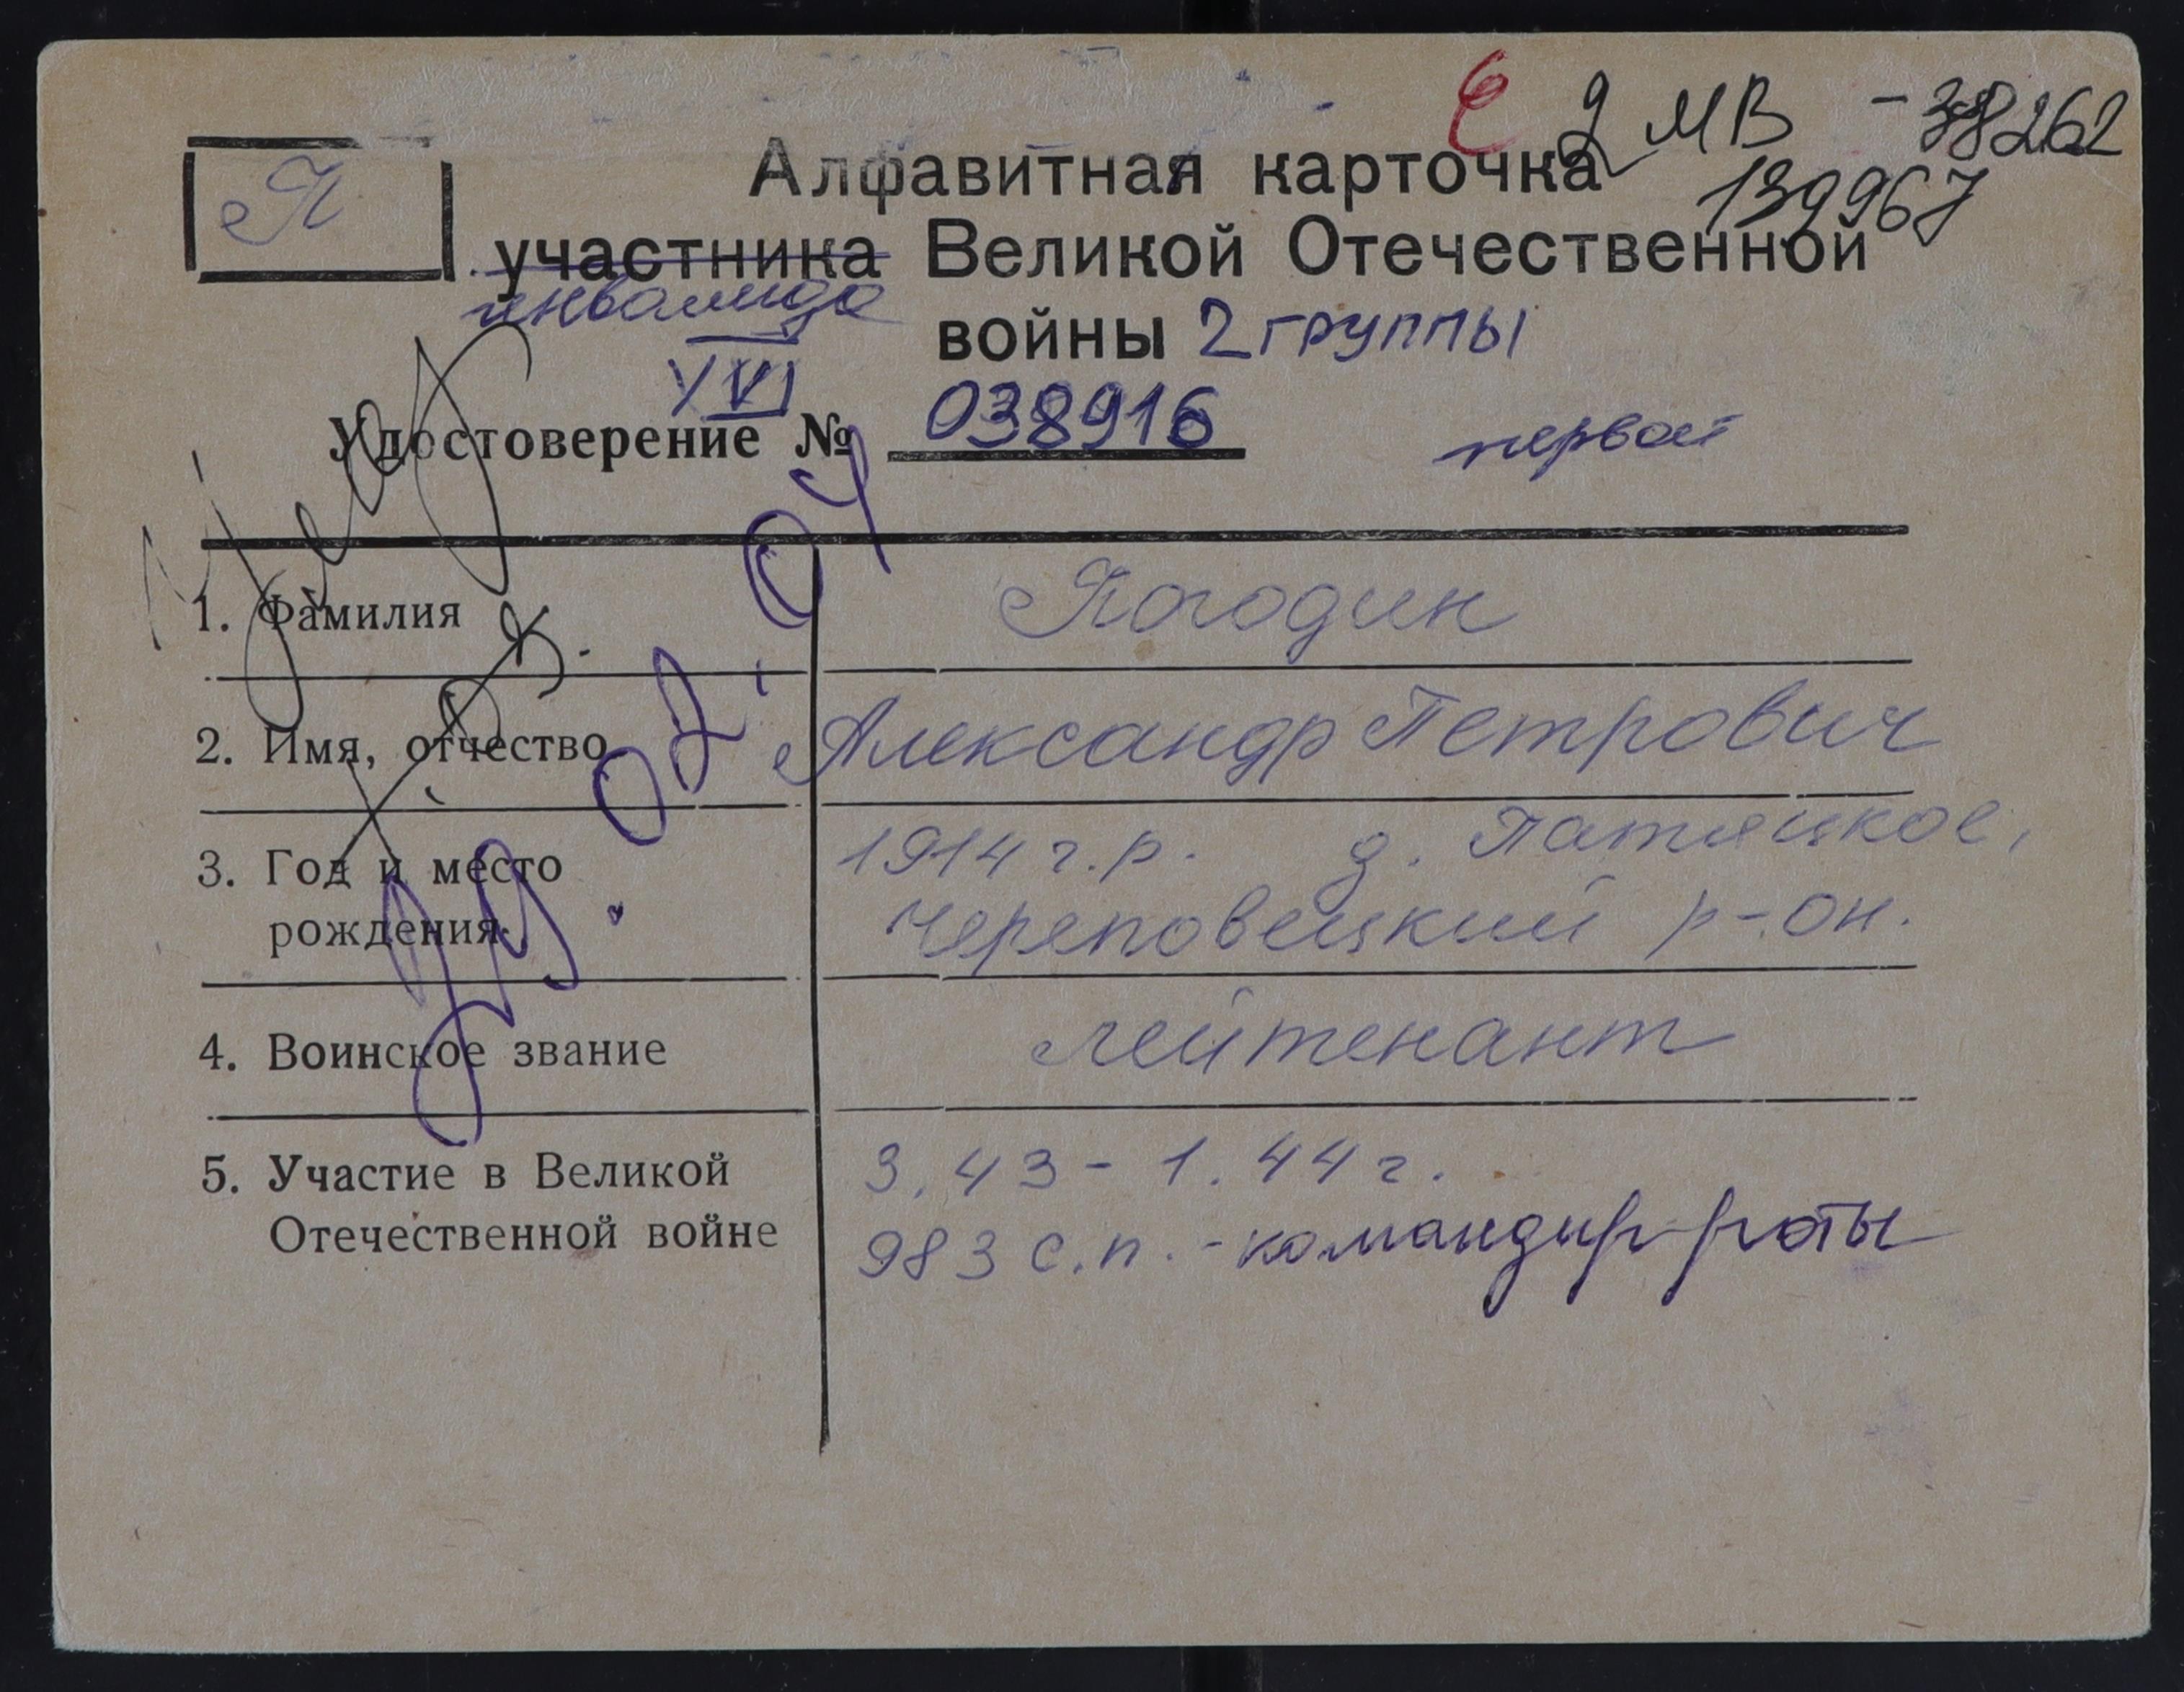 е 2 МВ - 38262
139967
П
Алфавитная карточка
участника Великой Отечественной
инвалида
войны 2 группы
VI
Удостоверение № 038916
первой
1. Фамилия Погодин
2. Имя, отчество Александр Петрович
3. Год и место рождения 1914 г.р. д. Патяцкое,
Череповецкий р-он.
4. Воинское звание лейтенант
5. Участие в Великой 3.43 - 1.44 г.
Отечественной войне 983 с.п. - командир роты